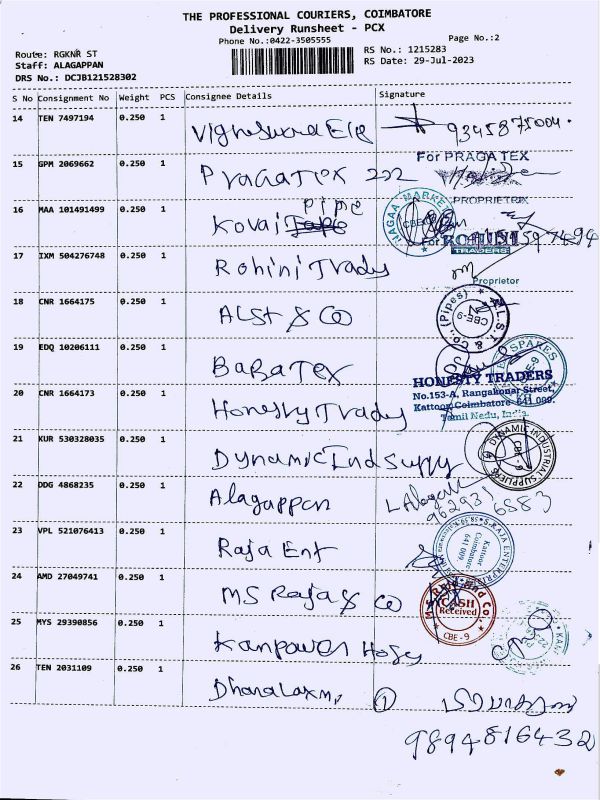 THE PROFESSIONAL COURIERS, COIMBATORE
Delivery Runsheet - PCX
Phone No.:0422-3505555
Page No.:2
Route: RGKNR ST
RS No.: 1215283
Staff: ALAGAPPAN
RS Date: 29-Jul-2023
DRS No.: DCJB121528302
S No Consignment No Weight PCS Consignee Details Signature
14 TEN 7497194 0.250 1 Vigneswara Ele 9345875004.
15 GPM 2069662 0.250 1 PragaTex 222 For PRAGA TEX
PROPRIETRIX
16 MAA 101491499 0.250 1 Kovai Pipe NAGAA MARKET CBE
For ROHINI TRADERS
17 IXM 504276748 0.250 1 Rohini Trady
Proprietor
18 CNR 1664175 0.250 1 ALST & Co A.L.S.T. & CO., (Pipes) CBE-9
19 EDQ 10206111 0.250 1 BaBa Tex SPARES
20 CNR 1664173 0.250 1 Honesty Trady HONESTY TRADERS
No.153-A, Rangakonar Street,
Kattoor, Coimbatore- 641 009.
Tamil Nadu, India.
21 KUR 530328035 0.250 1 Dynamic Ind Supply DYNAMIC INDUSTRIAL SUPPLIERS CBE-9
22 DDG 4868235 0.250 1 Alagappan L Alagu
962931 6583
23 VPL 521076413 0.250 1 Raja Ent S.RAJA ENTERPRISES Kattoor Coimbatore 641 009
24 AMD 27049741 0.250 1 MS Raja & Co M.S. Raja and Co. CASH Received CBE-9
25 MYS 29390856 0.250 1 Kanpower Hosy
26 TEN 2031109 0.250 1 Dhanalaxmi 1
9894816432